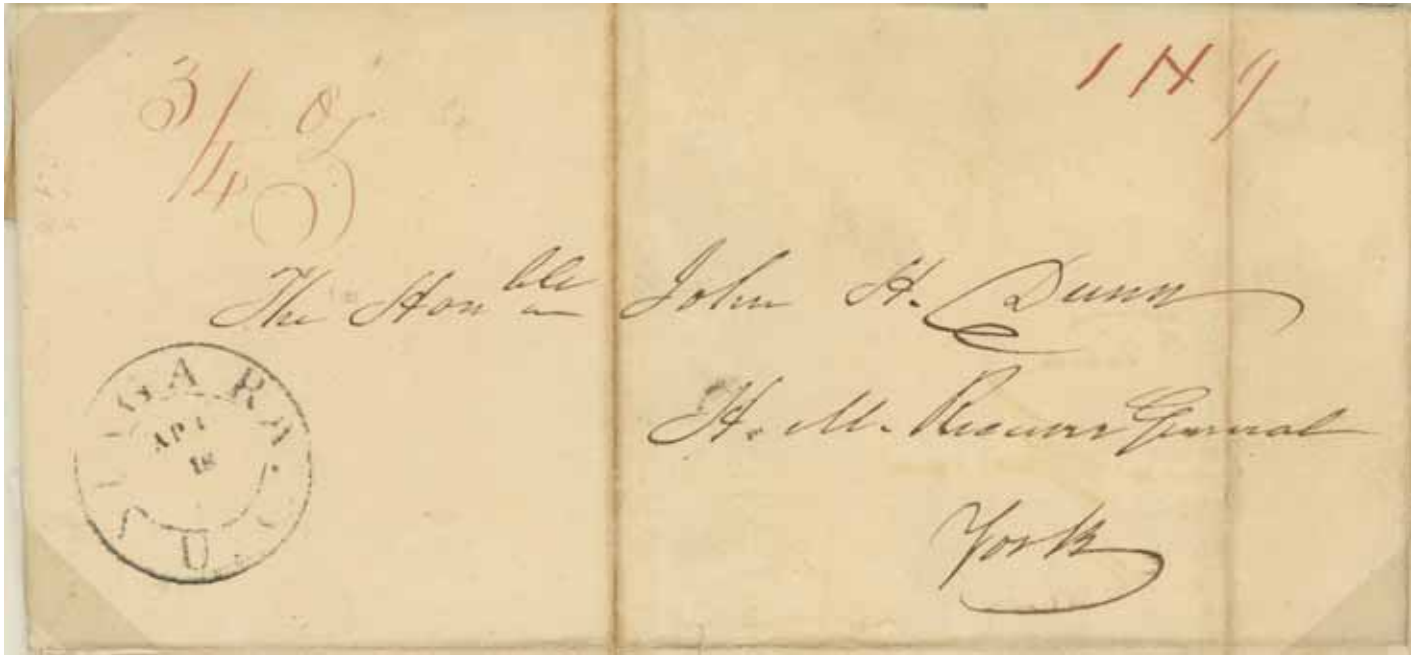 3/4
1 N 9
The Honble John H. Dunn
H. M. Receiver General
York
NIAGARA. U.C.
AP
18